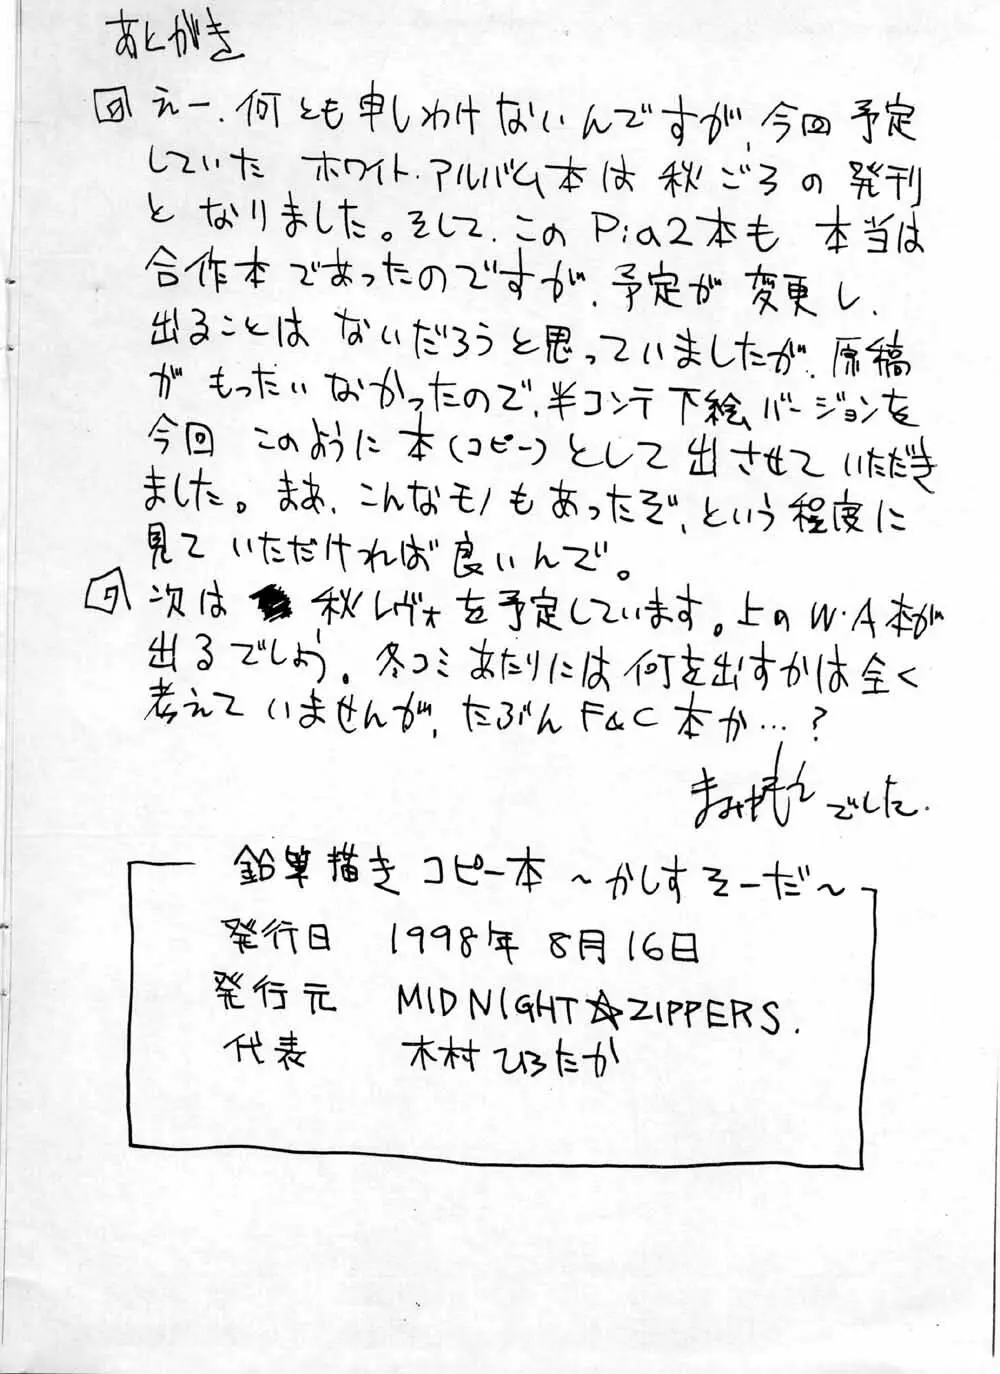 あとがき
えー、何とも申しわけないんですが、今回予定
していた ホワイト・アルバム本は秋ごろの発刊
となりました。そして、このPia2本も 本当は
合作本であったのですが、予定が変更し、
出ることは ないだろうと思っていましたが、原稿
が もったいなかったので、半コンテ下絵バージョンを
今回 このように本(コピー)として出させていただき
ました。まあ、こんなモノもあったぞ、という程度に
見て いただければ良いんで。
次は 秋レヴォを予定しています。上のW・A本が
出るでしょう。冬コミあたりには何を出すかは全く
考えていませんが、たぶんF&C本か…?
でした.
鉛筆描きコピー本 〜かしすそーだ〜
発行日 1998年 8月16日
発行元 MIDNIGHT☆ZIPPERS.
代表 木村ひろたか